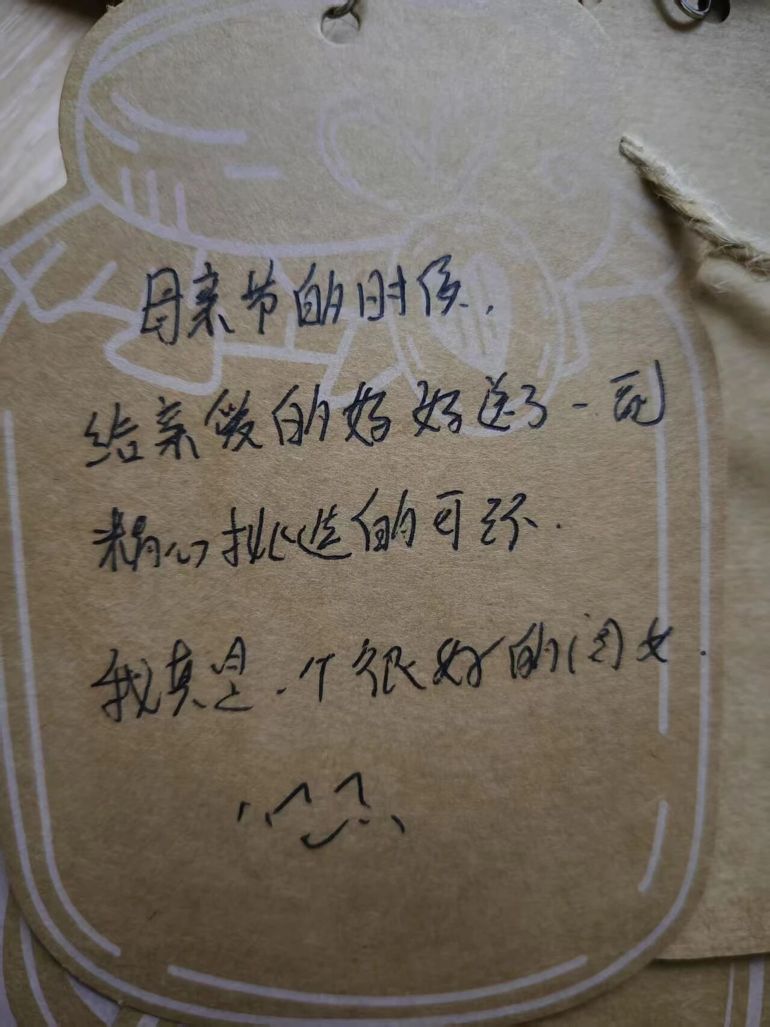 母亲节的时候，
给亲爱的妈妈送了一副
精心挑选的耳环.
我真是一个很好的闺女.